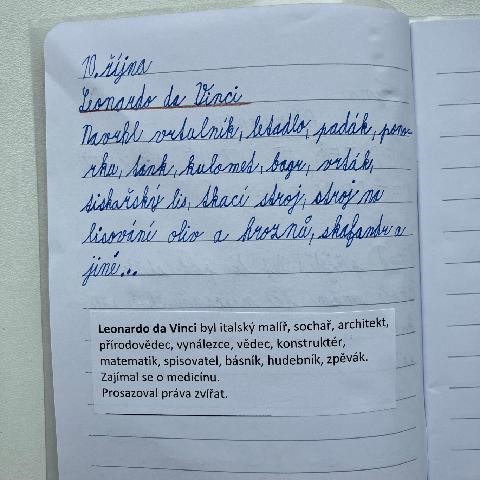 10. října
Leonardo da Vinci
Navrhl vrtulník, letadlo, padák, ponor-
rka, tank, kulomet, bagr, vrták,
tiskařský lis, tkací stroj, stroj na
lisování oliv a hroznů, skafandr a
jiné...
Leonardo da Vinci byl italský malíř, sochař, architekt,
přírodovědec, vynálezce, vědec, konstruktér,
matematik, spisovatel, básník, hudebník, zpěvák.
Zajímal se o medicínu.
Prosazoval práva zvířat.